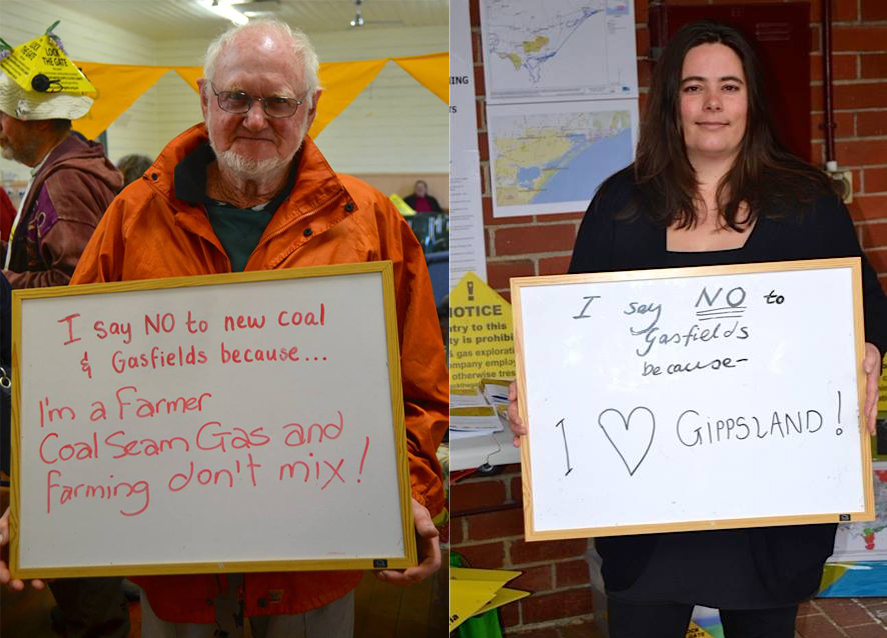 LOCK
THE GATE
I say NO to new coal
& Gasfields because...
I'm a Farmer
Coal Seam Gas and
farming don't mix!
NING
OTICE
ntry to this
ty is prohibi
& gas explorati
ompany employ
otherwise tres
I say NO to
Gasfields
because-
I ♡ GIPPSLAND!